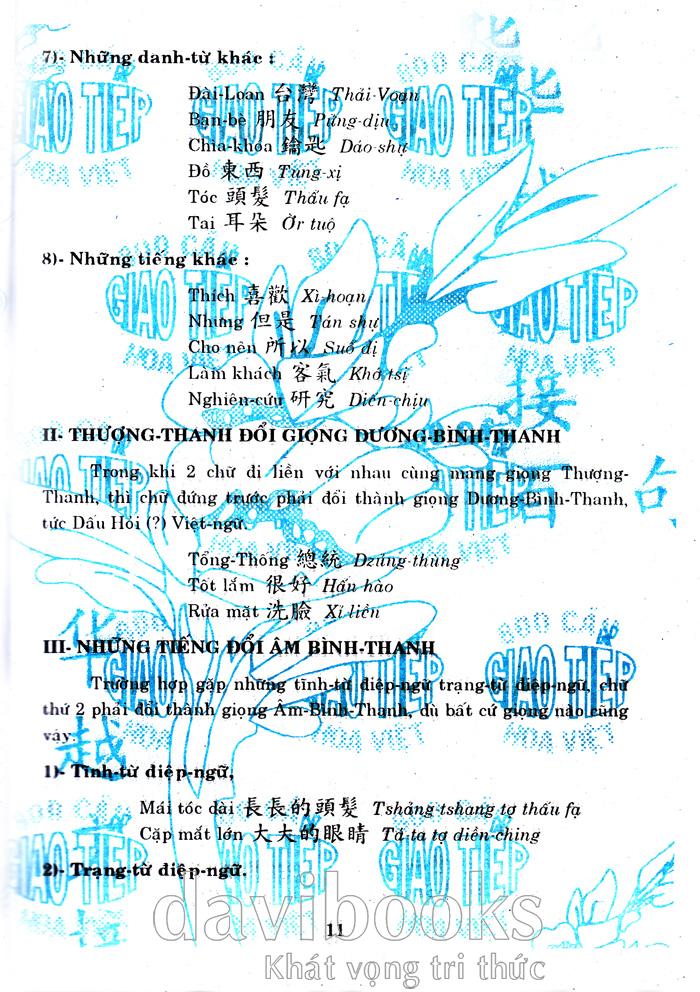 7)- Những danh-từ khác :
Đài-Loan 台灣 Thải-Voạn
Bạn-bè 朋友 Pửng-dịu
Chìa-khóa 鑰匙 Dáo-shự
Đồ 東西 Tung-xị
Tóc 頭髮 Thẩu fạ
Tai 耳朵 Ờr tuộ
8)- Những tiếng khác :
Thích 喜歡 Xì-hoạn
Nhưng 但是 Tán shự
Cho nên 所以 Suổ dị
Làm khách 客氣 Khớ tsị
Nghiên-cứu 研究 Diển-chịu
II- THƯỢNG-THANH ĐỔI GIỌNG DƯƠNG-BÌNH-THANH
Trong khi 2 chữ đi liền với nhau cùng mang giọng Thượng-
Thanh, thì chữ đứng trước phải đổi thành giọng Dương-Bình-Thanh,
tức Dấu Hỏi (?) Việt-ngữ.
Tổng-Thông 總統 Dzủng-thùng
Tốt lắm 很好 Hẩn hào
Rửa mặt 洗臉 Xỉ liền
III- NHỮNG TIẾNG ĐỔI ÂM BÌNH-THANH
Trường hợp gặp những tĩnh-từ điệp-ngữ trạng-từ điệp-ngữ, chữ
thứ 2 phải đổi thành giọng Âm-Bình-Thanh, dù bất cứ giọng nào cũng
vậy.
1)- Tĩnh-từ điệp-ngữ,
Mái tóc dài 長長的頭髮 Tshảng tshang tợ thẩu fạ
Cặp mắt lớn 大大的眼睛 Tá ta tợ diền-ching
2)- Trạng-từ điệp-ngữ.
davibooks
11
Khát vọng tri thức
GIAO TIẾP
HOA VIỆT
华
越
接
台